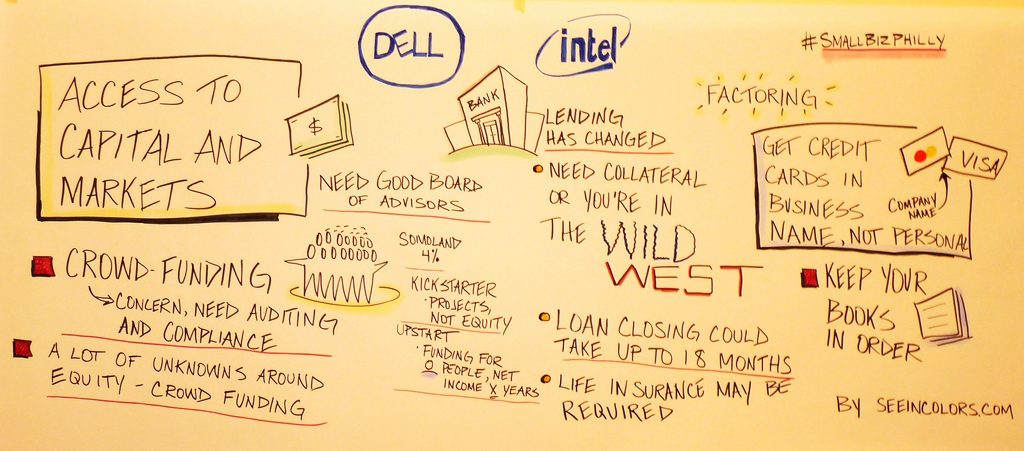 DELL
intel
#SMALLBIZPHILLY
ACCESS TO
CAPITAL AND
MARKETS
$
NEED GOOD BOARD
OF ADVISORS
CROWD-FUNDING
CONCERN, NEED AUDITING
AND COMPLIANCE
A LOT OF UNKNOWNS AROUND
EQUITY - CROWD FUNDING
SOMOLAND
4%
KICKSTARTER
· PROJECTS,
NOT EQUITY
UPSTART
· FUNDING FOR
O PEOPLE, NET
INCOME X YEARS
BANK
LENDING
HAS CHANGED
• NEED COLLATERAL
OR YOU'RE IN
THE WILD
WEST
• LOAN CLOSING COULD
TAKE UP TO 18 MONTHS
• LIFE INSURANCE MAY BE
REQUIRED
FACTORING
GET CREDIT
CARDS IN
BUSINESS
NAME, NOT PERSONAL
VISA
COMPANY
NAME
KEEP YOUR
BOOKS
IN ORDER
BY SEEINCOLORS.COM